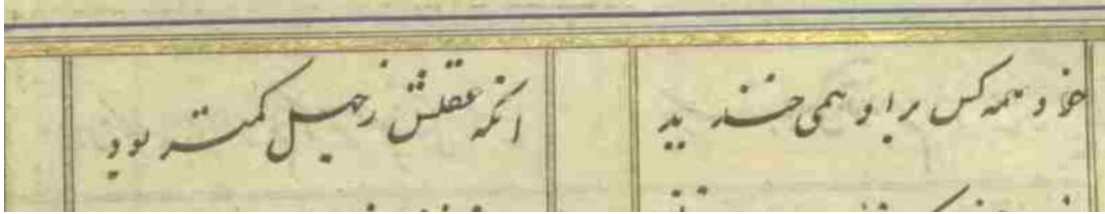 خود همه کس براو همی خندید
انکه عقلش زجهل کمتر بود